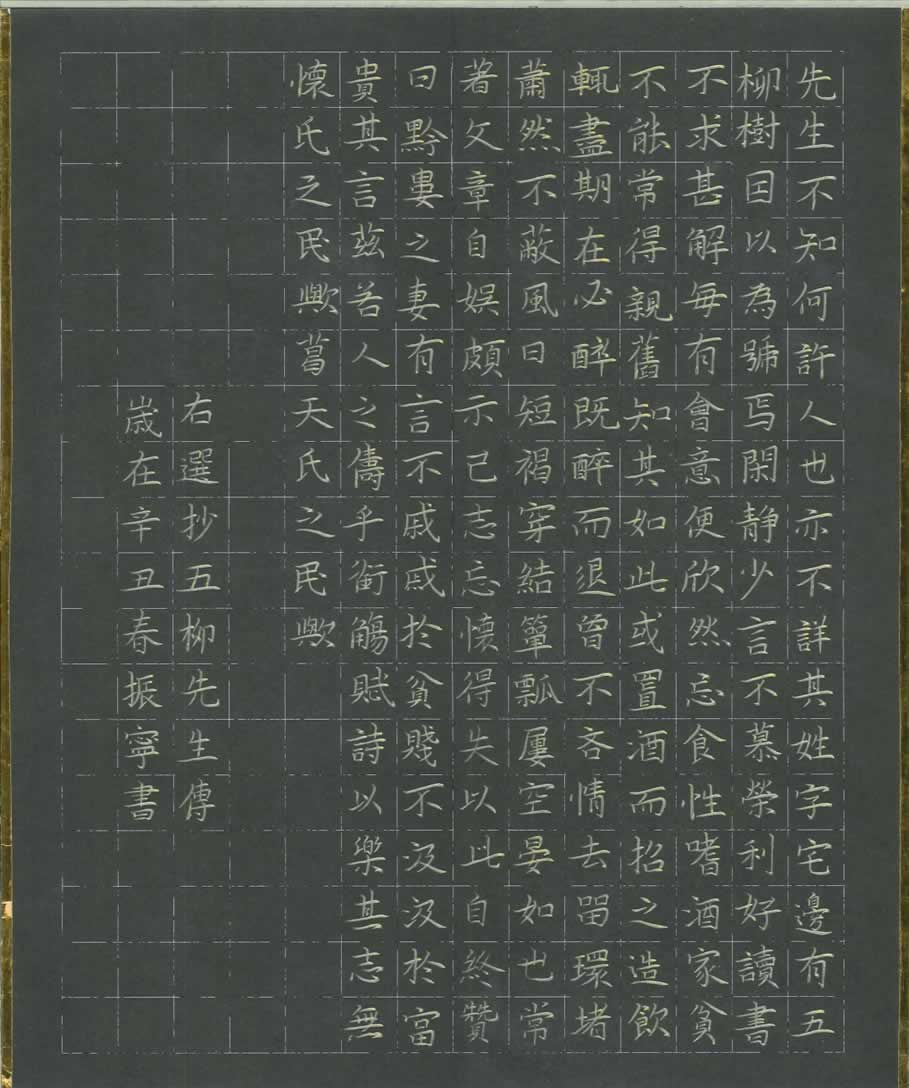 先生不知何許人也亦不詳其姓字宅邊有五
柳樹因以為號焉閑静少言不慕榮利好讀書
不求甚解每有會意便欣然忘食性嗜酒家貧
不能常得親舊知其如此或置酒而招之造飲
輒盡期在必醉既醉而退曾不吝情去留環堵
蕭然不蔽風日短褐穿結簞瓢屢空晏如也常
著文章自娱頗示己志忘懷得失以此自終贊
曰黔婁之妻有言不戚戚於貧賤不汲汲於富
貴其言茲若人之儔乎銜觴賦詩以樂其志無
懷氏之民歟葛天氏之民歟
右選抄五柳先生傳
歲在辛丑春振寧書